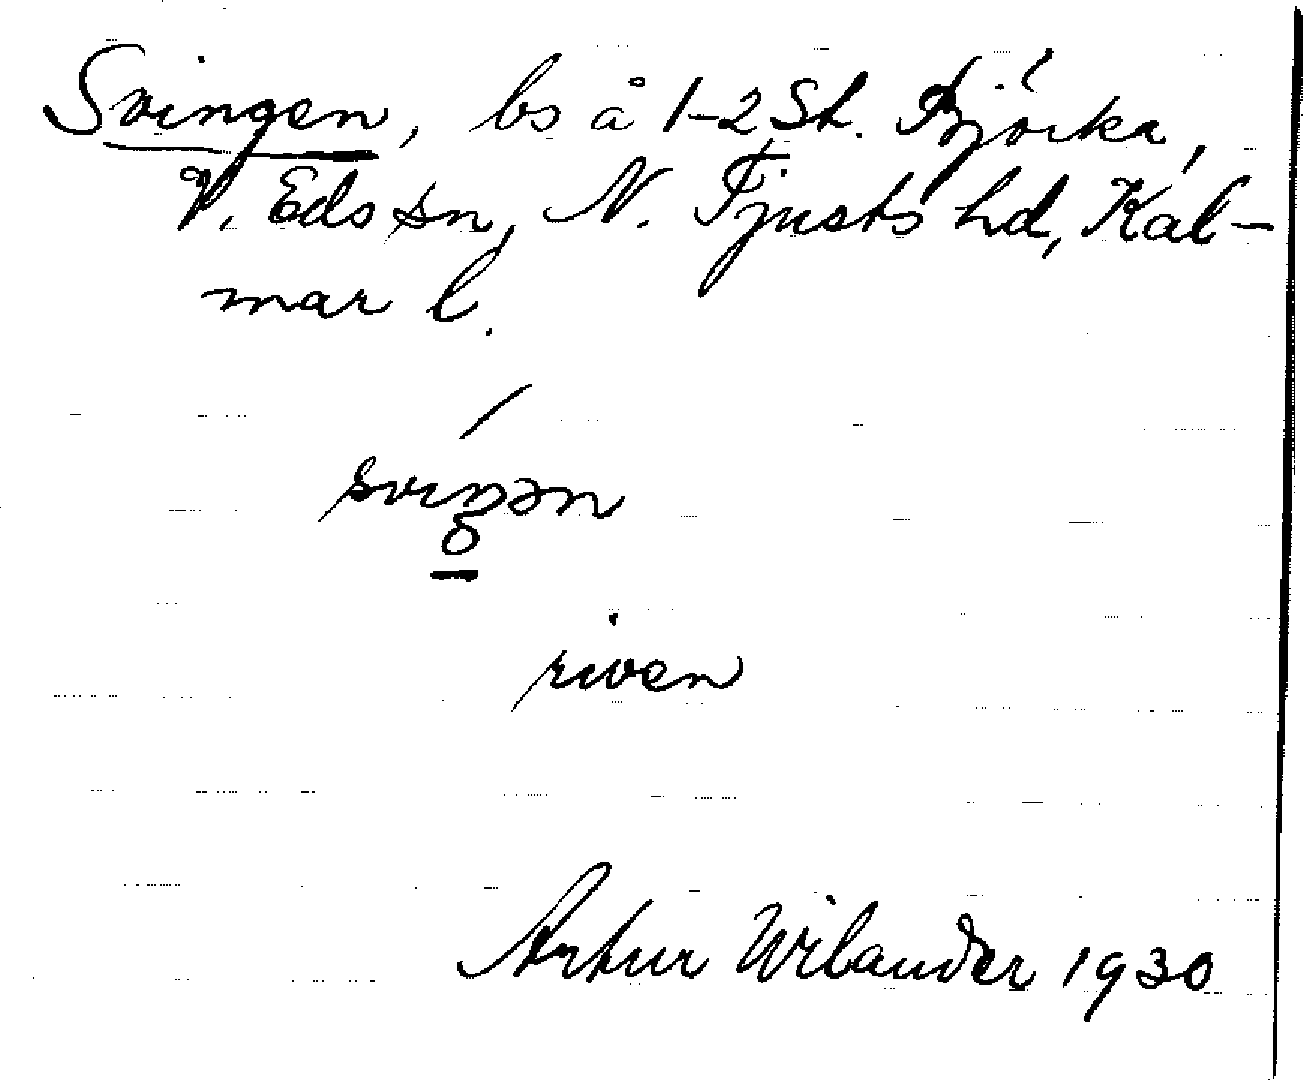 Svingen, bs å 1-2 St. Björka,
V. Eds sn, N. Tjusts hd, Kal-
mar l.
sviŋən
riven
Artur Wilander 1930